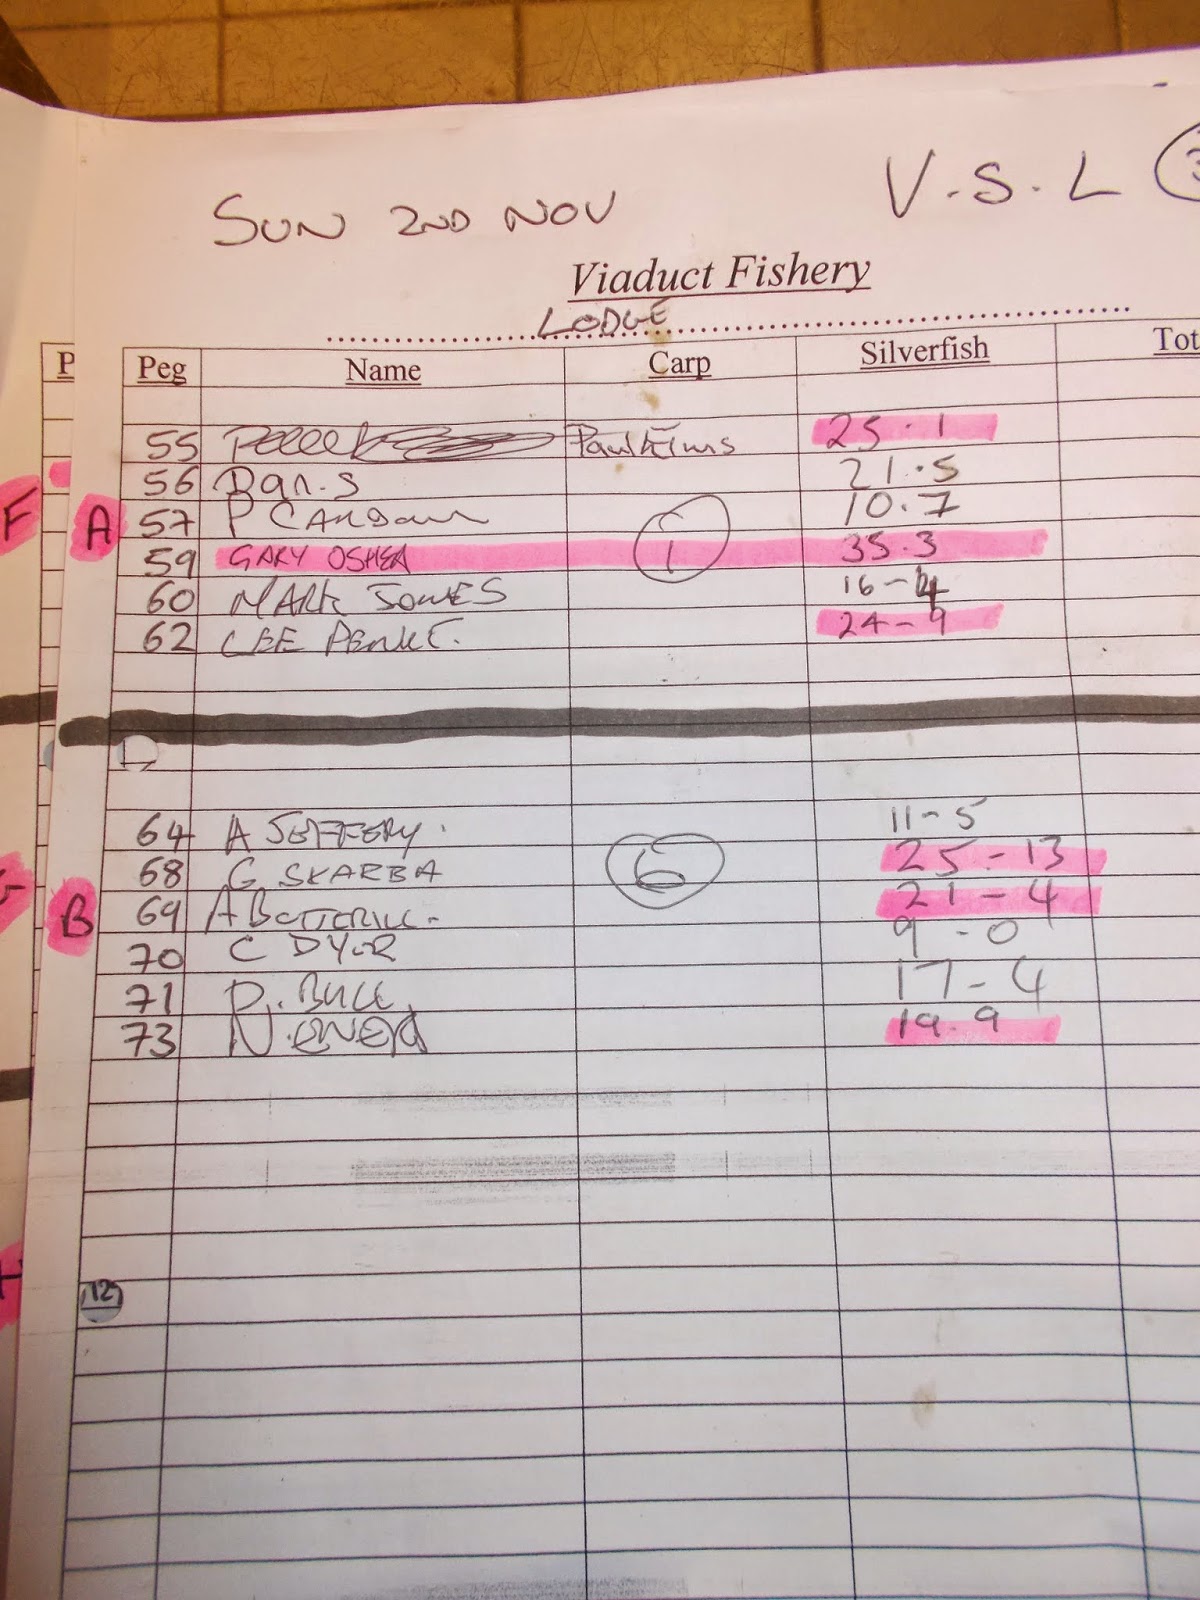 SUN 2ND NOV
V.S.L
Viaduct Fishery
LODGE
P
Peg Name Carp Silverfish Tot
55 25.1
56 Dan.S 21.5
F
A
57 P 10.7
59 GARY OSHEA 1 35.3
60 MARK JONES 16-4
62 LEE 24-9
64 A JEFFERY. 11-5
68 G SKARBA 6 25-13
B
69 A 21-4
70 C DYER 9-0
71 17-4
73 N. 19.9
12